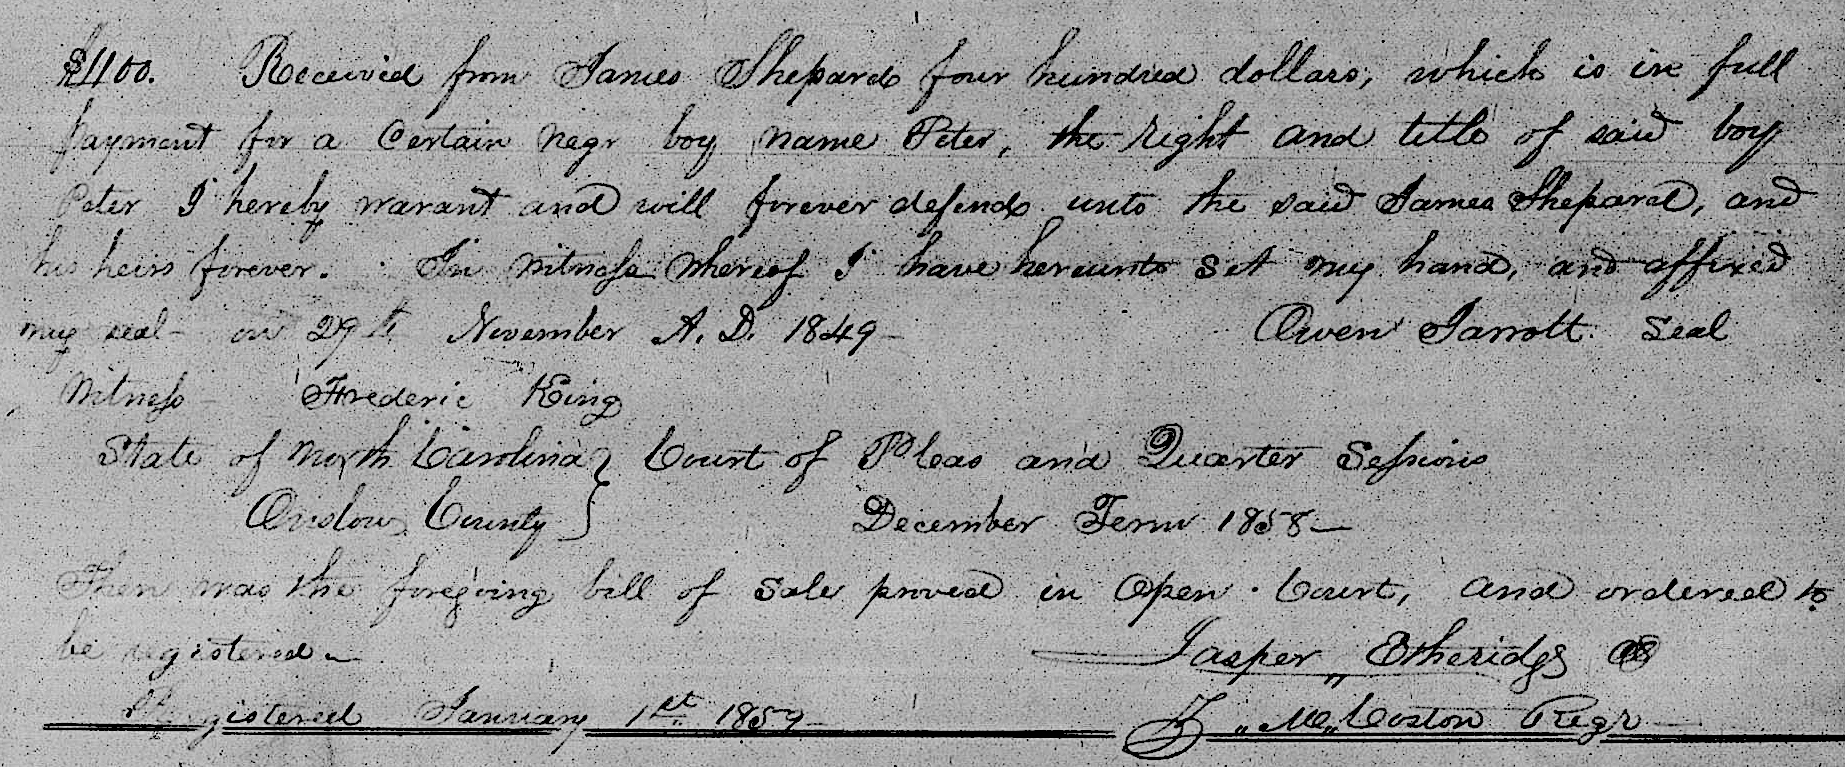 $400. Received from James Shepard four hundred dollars, which is in full
payment for a Certain negr boy name Peter, the right and title of said boy
Peter I hereby warant and will forever defend unto the said James Shepard, and
his heirs forever. In witness whereof I have hereunto set my hand, and affixed
my seal - on 29th November A. D. 1849 - Owen Jarrott. Seal
Witness - Frederic King
State of North Carolina } Court of Pleas and Quarter Sessions
Onslow County } December Term 1858 -
Then was the foregoing bill of sale proved in Open Court, and ordered to
be registered - Jasper Etheridge
Registered January 1st 1859 - M Coston Regr